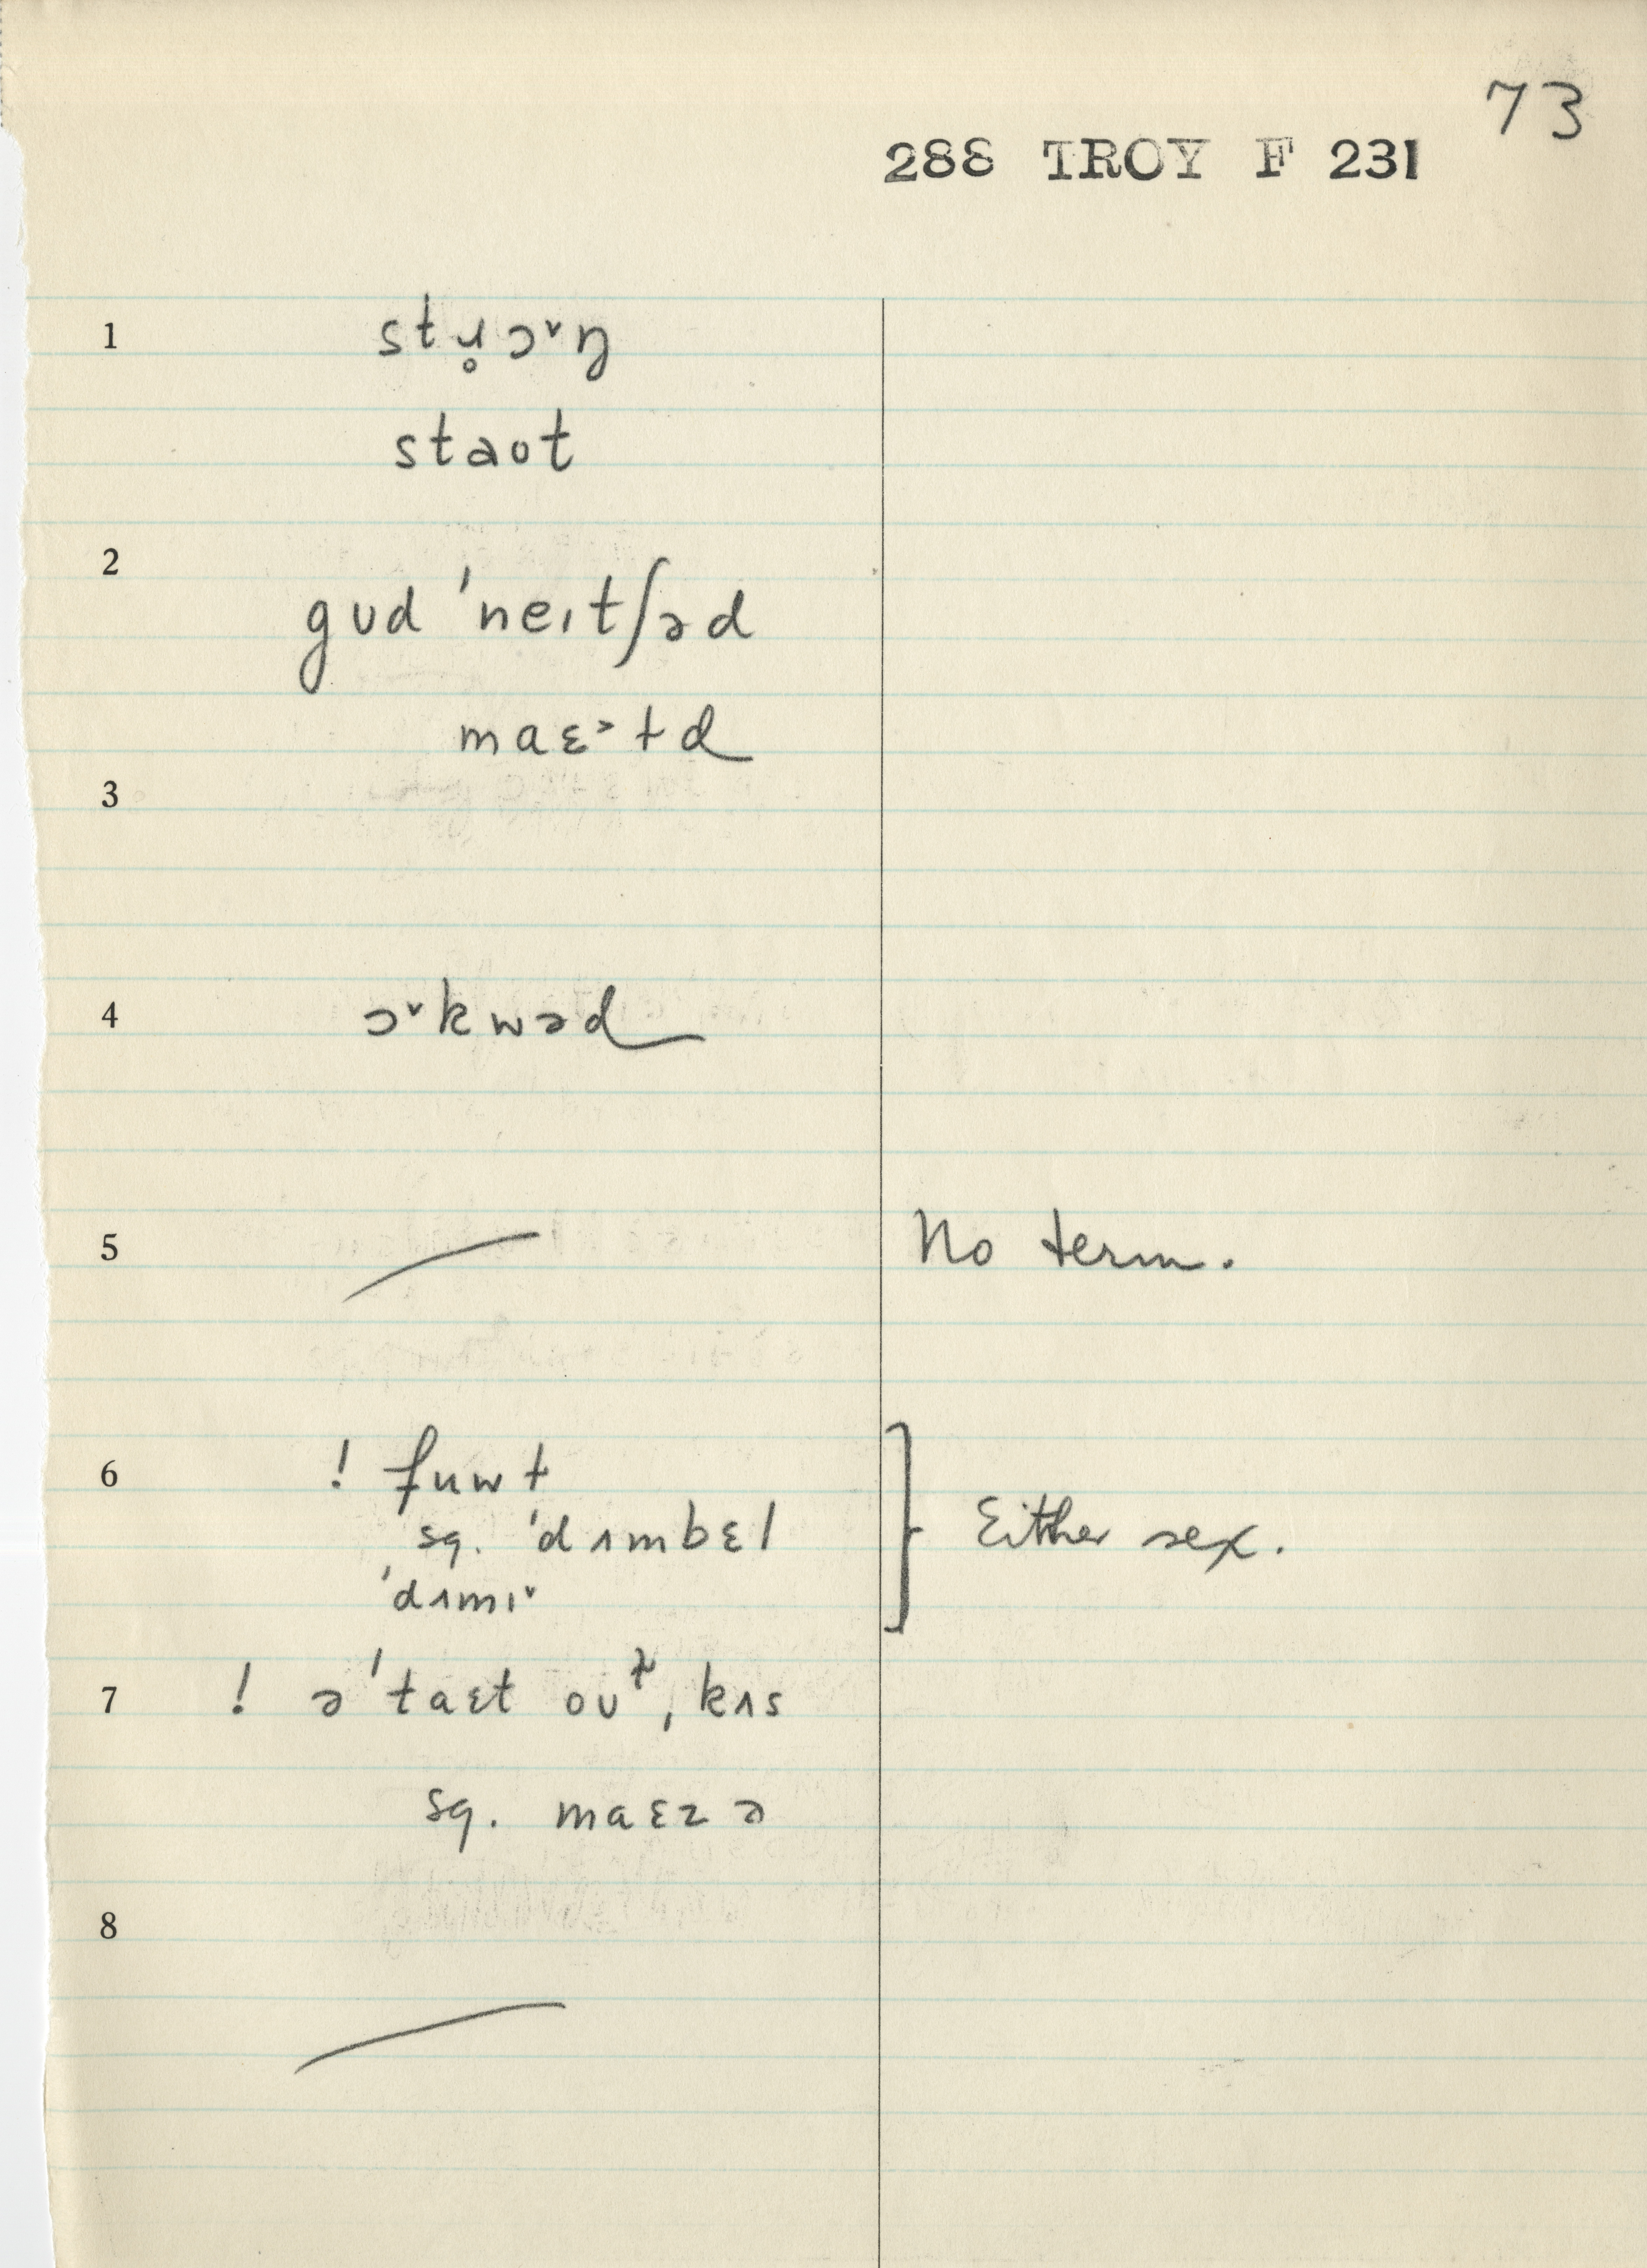 73
288 TROY F 231
1 stɹ̥ɔˇŋ
staot
2 gud 'neɪtʃəd
maɛ˃ɫd
3
4 ɔˇkwəd
5 No term.
6 ! fuwɫ
sg. 'dʌmbɛl
'dʌmɪˇ
Either sex.
7 ! ə'taɛt ouɫ, kʌs
sg. maɛzə
8